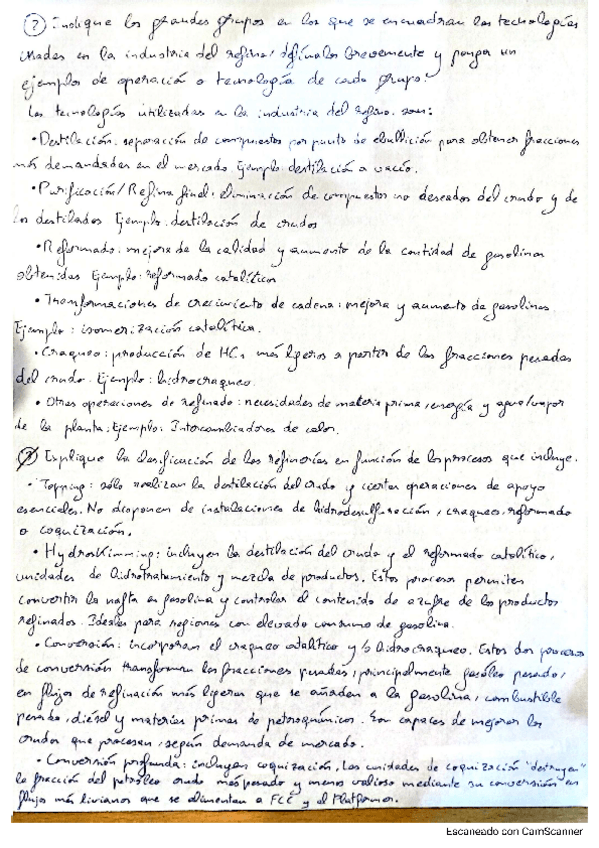 ② Indique los grandes grupos en los que se encuadran las tecnologías
usadas en la industria del refino, defínalos brevemente y ponga un
ejemplo de operación o tecnología de cada grupo.
Las tecnologías utilizadas en la industria del refino son:
• Destilación: separación de compuestos por punto de ebullición para obtener fracciones
más demandadas en el mercado. Ejemplo: destilación a vacío.
• Purificación/Refino final: eliminación de compuestos no deseados del crudo y de
los destilados Ejemplo: destilación de crudos
• Reformado: mejora de la calidad y aumento de la cantidad de gasolinas
obtenidas Ejemplo: reformado catalítico
• Transformaciones de crecimiento de cadena: mejora y aumento de gasolinas
Ejemplo: isomerización catalítica.
• Craqueo: producción de HCs más ligeros a partir de las fracciones pesadas
del crudo. Ejemplo: hidrocraqueo.
• Otras operaciones de refinado: necesidades de materia prima, energía y agua/vapor
de la planta; Ejemplo: Intercambiadores de calor.
Explique la clasificación de las refinerías en función de los procesos que incluye.
• Topping: sólo realizan la destilación del crudo y ciertas operaciones de apoyo
esenciales. No disponen de instalaciones de hidrodesulfuración, craqueo, reformado
o coquización.
• Hydroskimming: incluyen la destilación del crudo y el reformado catalítico,
unidades de hidrotratamiento y mezcla de productos. Estos procesos permiten
convertir la nafta en gasolina y controlar el contenido de azufre de los productos
refinados. Ideales para regiones con elevado consumo de gasolina.
• Conversión: incorporan el craqueo catalítico y/o hidrocraqueo. Estos dos procesos
de conversión transforman las fracciones pesadas, principalmente gasóleo pesado,
en flujos de refinación más ligeros que se añaden a la gasolina, combustible
pesado, diésel y materias primas de petroquímicos. Son capaces de mejorar los
crudos que procesan, según demanda de mercado.
• Conversión profunda: incluyen coquización. Las unidades de coquización "destruyen"
la fracción del petróleo crudo más pesado y menos valioso mediante su conversión en
flujos más livianos que se alimentan a FCC y el Platformer.
Escaneado con CamScanner